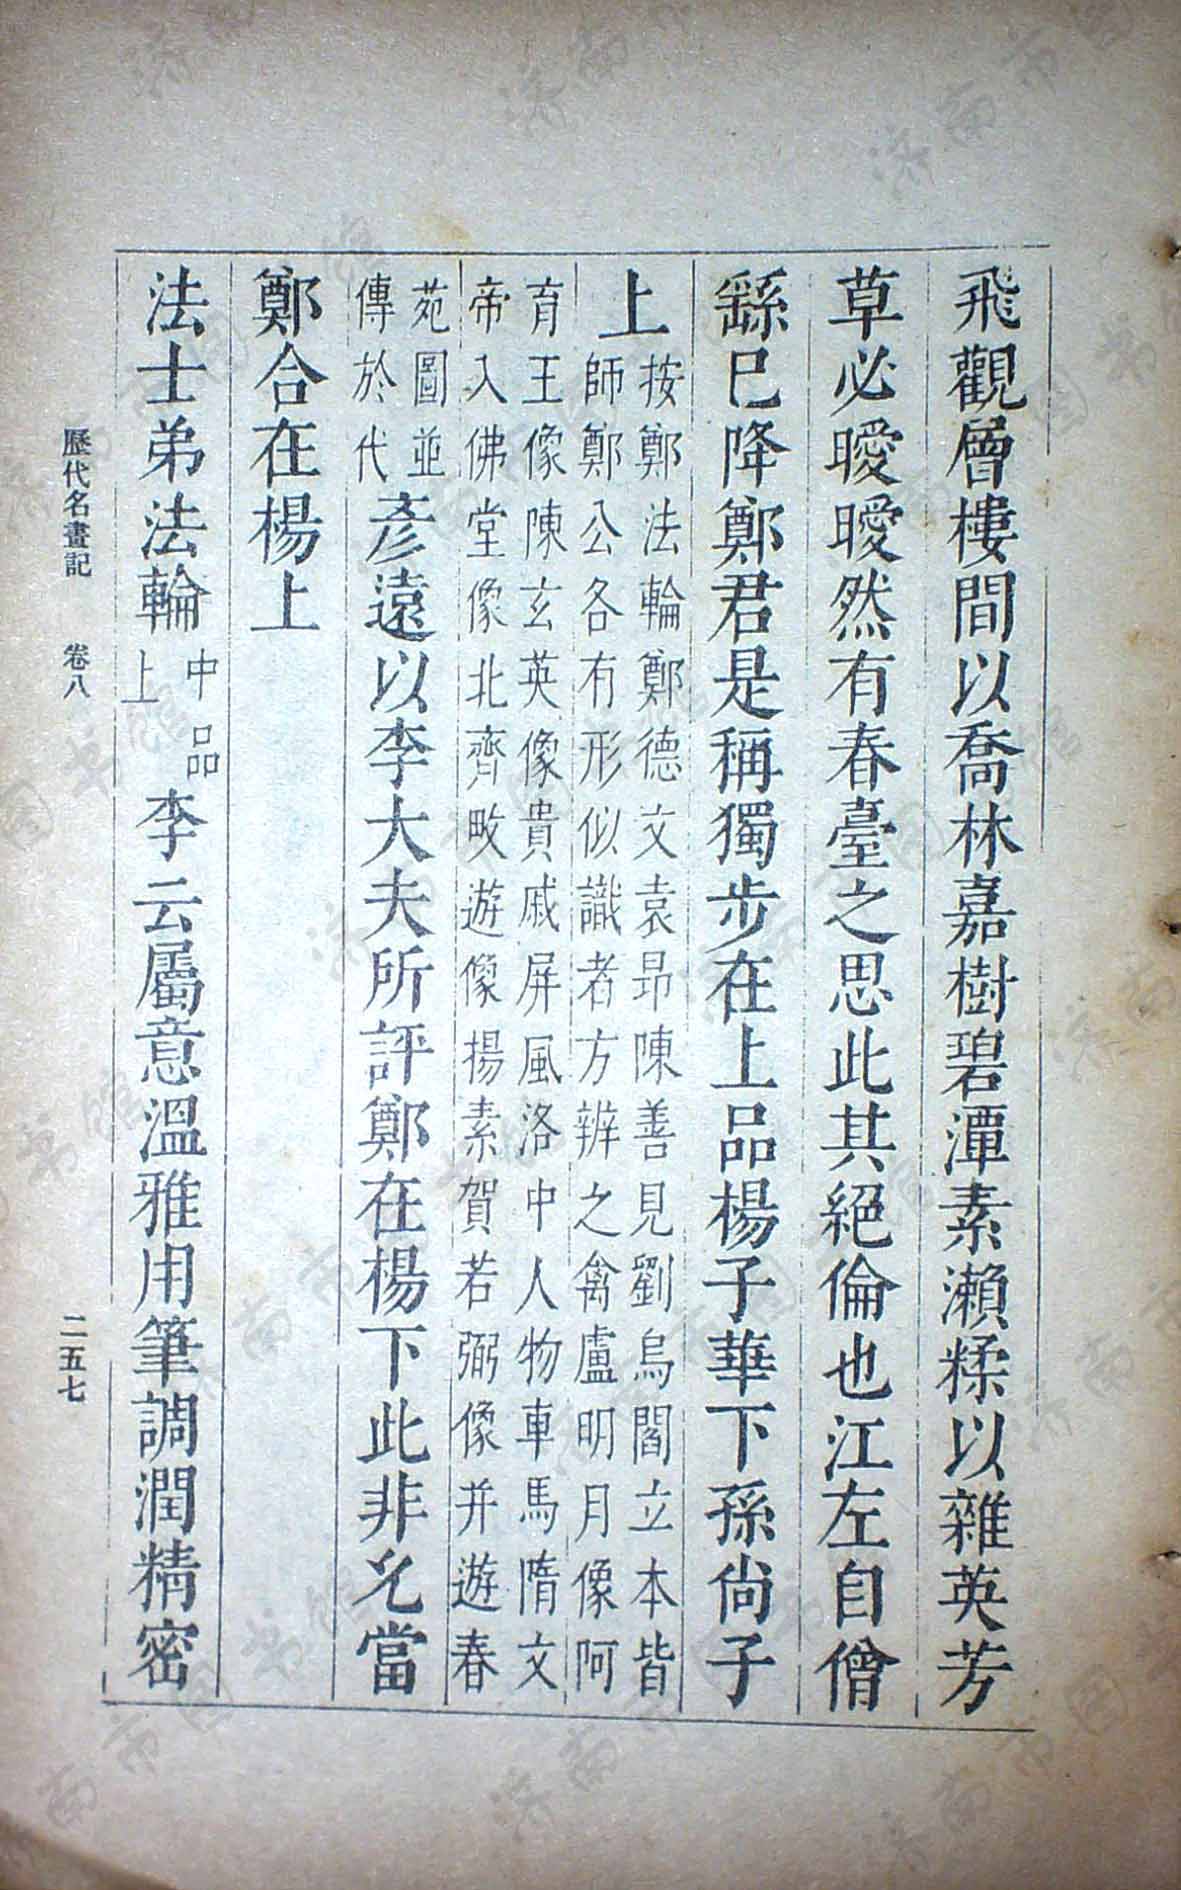 飛觀層樓間以喬林嘉樹碧潭素瀨糅以雜英芳
草必曖曖然有春臺之思此其絕倫也江左自僧
繇巳降鄭君是稱獨步在上品楊子華下孫尚子
上
按鄭法輪鄭德文袁昂陳善見劉烏閻立本皆
師鄭公各有形似識者方辨之禽盧明月像阿
育王像陳玄英像貴戚屏風洛中人物車馬隋文
帝入佛堂像北齊畋遊像揚素賀若弼像并遊春
苑圖並
傳於代
彥遠以李大夫所評鄭在楊下此非允當
鄭合在楊上
法士弟法輪
中品
上
李云屬意溫雅用筆調潤精密
歷代名畫記 卷八 二五七
济南市图书馆